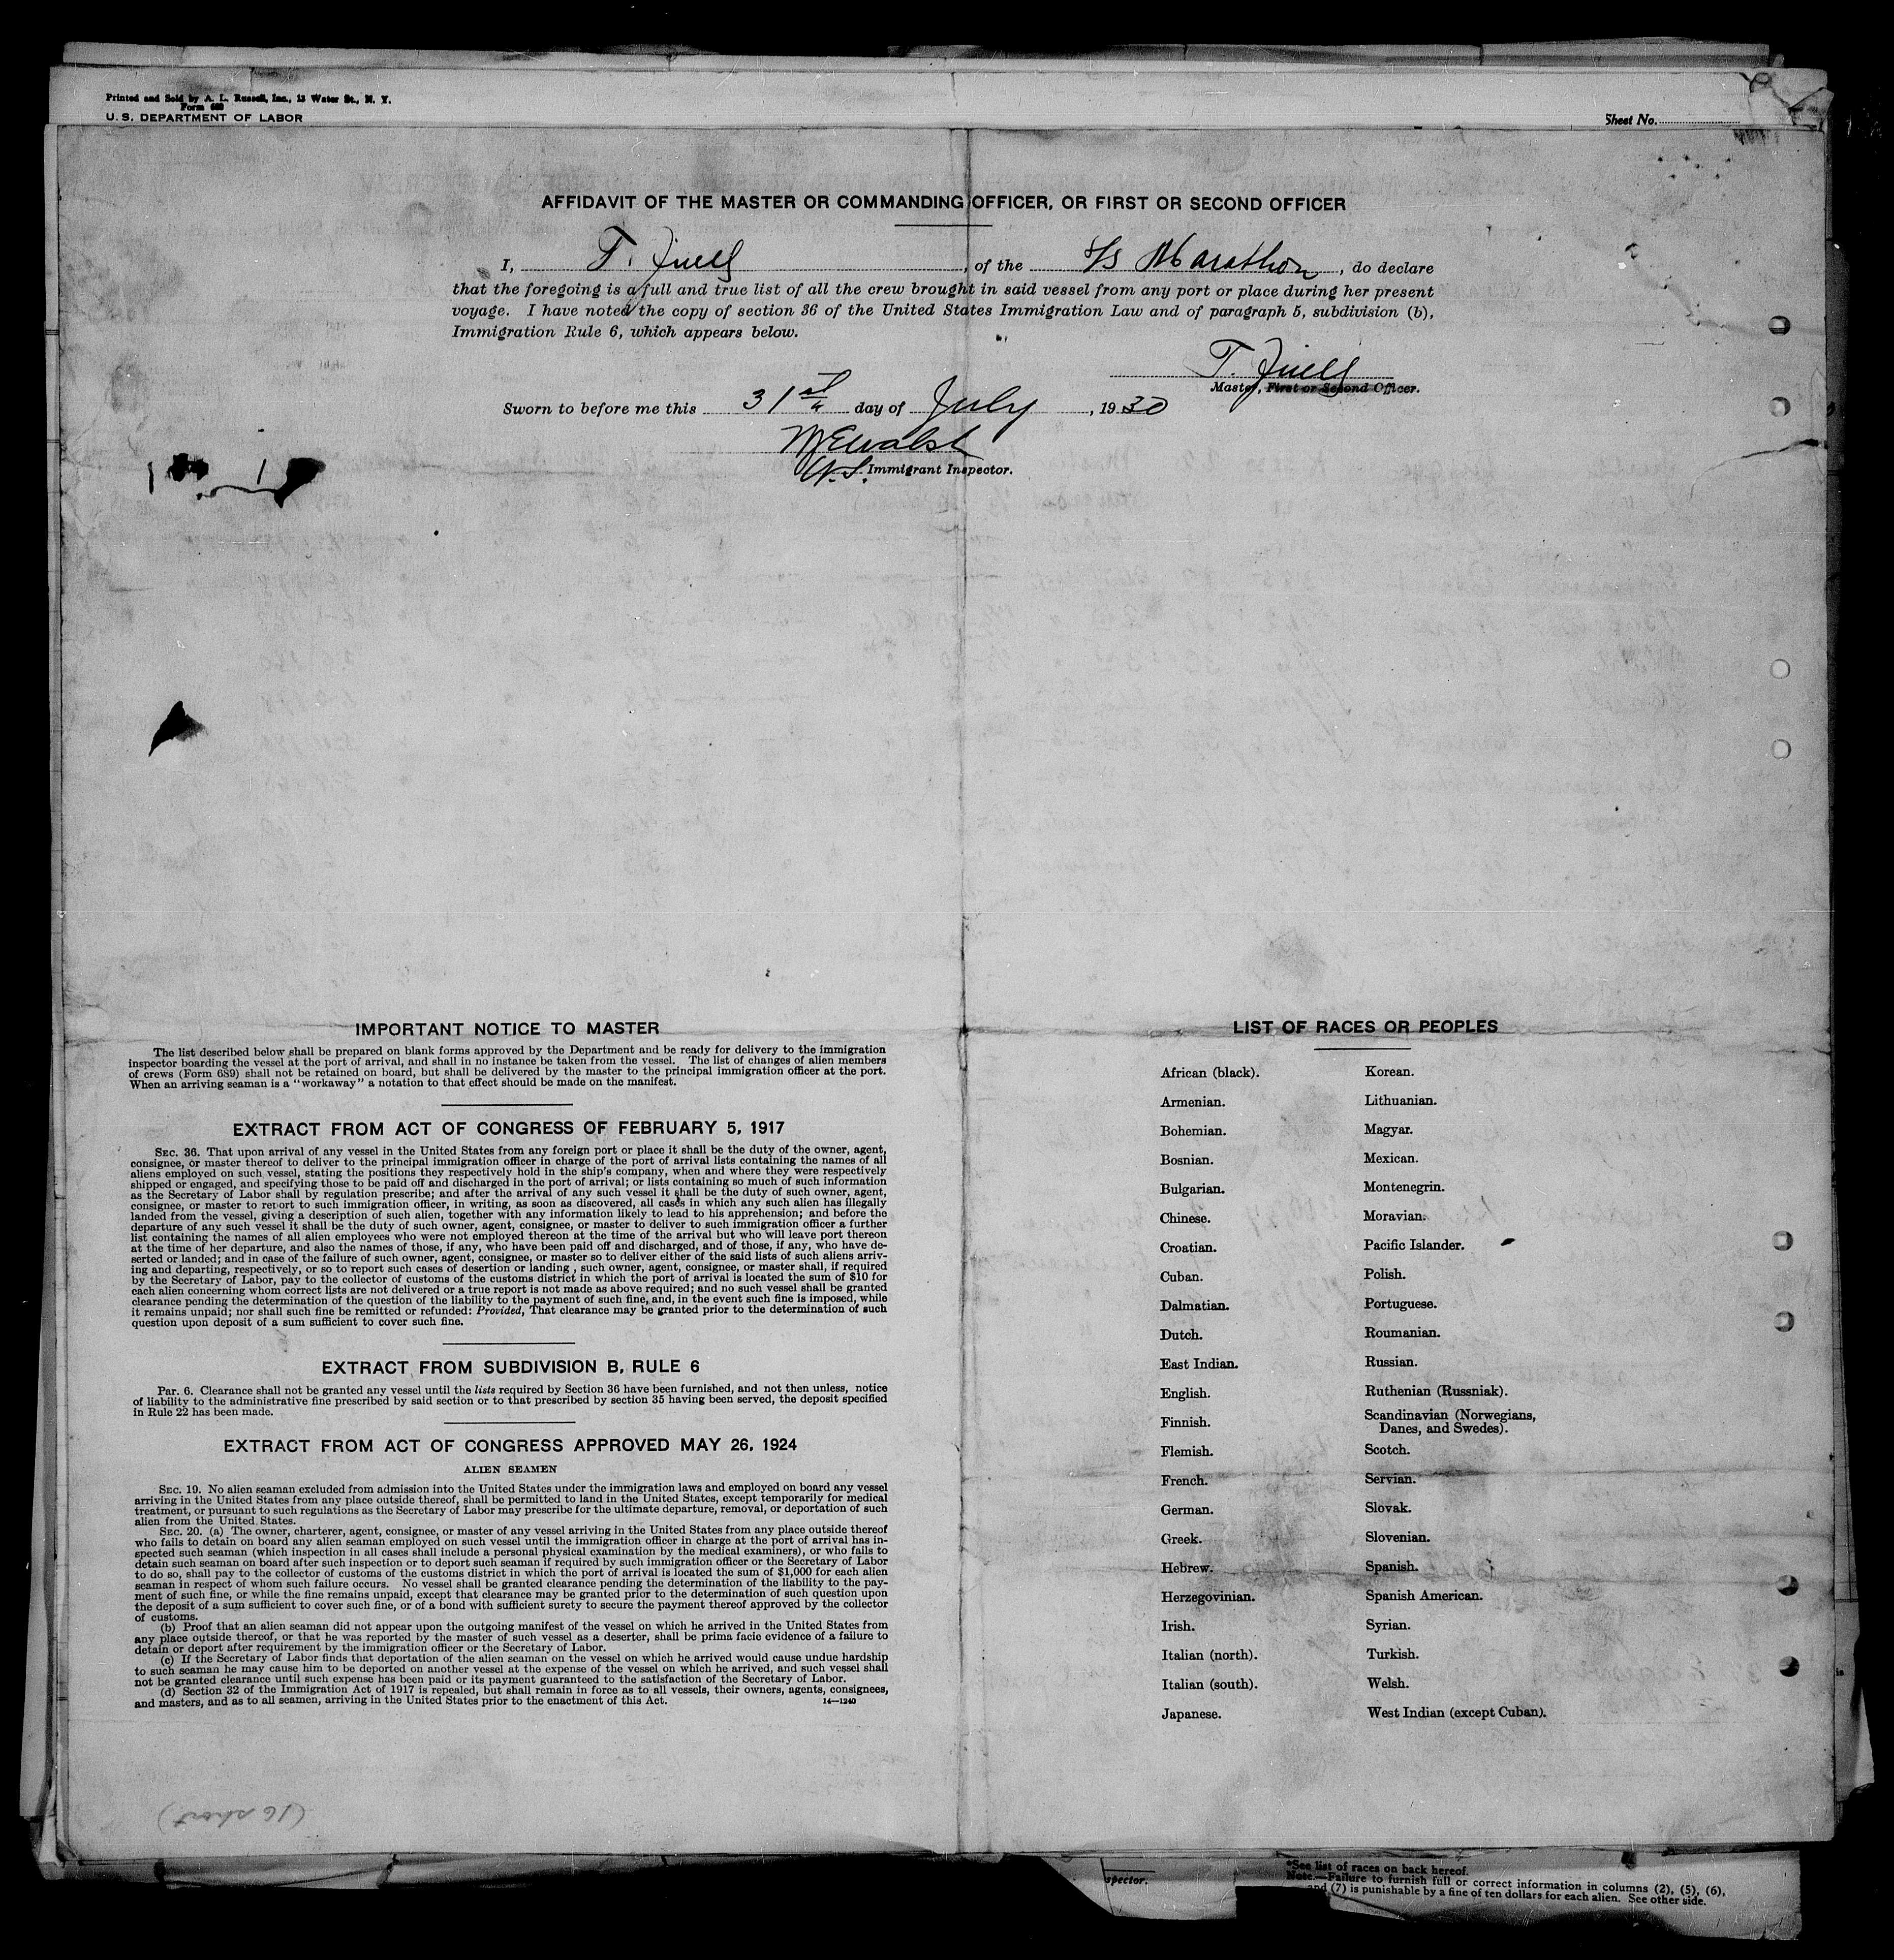 Printed and Sold by A. L. Russell, Inc., 13 Water St., N. Y.
Form 680
U. S. DEPARTMENT OF LABOR
Sheet No.
AFFIDAVIT OF THE MASTER OR COMMANDING OFFICER, OR FIRST OR SECOND OFFICER
I, T. , of the S/S Marathon, do declare
that the foregoing is a full and true list of all the crew brought in said vessel from any port or place during her present
voyage. I have noted the copy of section 36 of the United States Immigration Law and of paragraph 5, subdivision (b),
Immigration Rule 6, which appears below.
T.
Master, First or Second Officer.
Sworn to before me this 31st day of July, 1930
U.S. Immigrant Inspector.
IMPORTANT NOTICE TO MASTER
The list described below shall be prepared on blank forms approved by the Department and be ready for delivery to the immigration
inspector boarding the vessel at the port of arrival, and shall in no instance be taken from the vessel. The list of changes of alien members
of crews (Form 689) shall not be retained on board, but shall be delivered by the master to the principal immigration officer at the port.
When an arriving seaman is a "workaway" a notation to that effect should be made on the manifest.
EXTRACT FROM ACT OF CONGRESS OF FEBRUARY 5, 1917
SEC. 36. That upon arrival of any vessel in the United States from any foreign port or place it shall be the duty of the owner, agent,
consignee, or master thereof to deliver to the principal immigration officer in charge of the port of arrival lists containing the names of all
aliens employed on such vessel, stating the positions they respectively hold in the ship's company, when and where they were respectively
shipped or engaged, and specifying those to be paid off and discharged in the port of arrival; or lists containing so much of such information
as the Secretary of Labor shall by regulation prescribe; and after the arrival of any such vessel it shall be the duty of such owner, agent,
consignee, or master to report to such immigration officer, in writing, as soon as discovered, all cases in which any such alien has illegally
landed from the vessel, giving a description of such alien, together with any information likely to lead to his apprehension; and before the
departure of any such vessel it shall be the duty of such owner, agent, consignee, or master to deliver to such immigration officer a further
list containing the names of all alien employees who were not employed thereon at the time of the arrival but who will leave port thereon
at the time of her departure, and also the names of those, if any, who have been paid off and discharged, and of those, if any, who have de-
serted or landed; and in case of the failure of such owner, agent, consignee, or master so to deliver either of the said lists of such aliens arriv-
ing and departing, respectively, or so to report such cases of desertion or landing , such owner, agent, consignee, or master shall, if required
by the Secretary of Labor, pay to the collector of customs of the customs district in which the port of arrival is located the sum of $10 for
each alien concerning whom correct lists are not delivered or a true report is not made as above required; and no such vessel shall be granted
clearance pending the determination of the question of the liability to the payment of such fine, and, in the event such fine is imposed, while
it remains unpaid; nor shall such fine be remitted or refunded: Provided, That clearance may be granted prior to the determination of such
question upon deposit of a sum sufficient to cover such fine.
EXTRACT FROM SUBDIVISION B, RULE 6
Par. 6. Clearance shall not be granted any vessel until the lists required by Section 36 have been furnished, and not then unless, notice
of liability to the administrative fine prescribed by said section or to that prescribed by section 35 having been served, the deposit specified
in Rule 22 has been made.
EXTRACT FROM ACT OF CONGRESS APPROVED MAY 26, 1924
ALIEN SEAMEN
SEC. 19. No alien seaman excluded from admission into the United States under the immigration laws and employed on board any vessel
arriving in the United States from any place outside thereof, shall be permitted to land in the United States, except temporarily for medical
treatment, or pursuant to such regulations as the Secretary of Labor may prescribe for the ultimate departure, removal, or deportation of such
alien from the United States.
SEC. 20. (a) The owner, charterer, agent, consignee, or master of any vessel arriving in the United States from any place outside thereof
who fails to detain on board any alien seaman employed on such vessel until the immigration officer in charge at the port of arrival has in-
spected such seaman (which inspection in all cases shall include a personal physical examination by the medical examiners), or who fails to
detain such seaman on board after such inspection or to deport such seaman if required by such immigration officer or the Secretary of Labor
to do so, shall pay to the collector of customs of the customs district in which the port of arrival is located the sum of $1,000 for each alien
seaman in respect of whom such failure occurs. No vessel shall be granted clearance pending the determination of the liability to the pay-
ment of such fine, or while the fine remains unpaid, except that clearance may be granted prior to the determination of such question upon
the deposit of a sum sufficient to cover such fine, or of a bond with sufficient surety to secure the payment thereof approved by the collector
of customs.
(b) Proof that an alien seaman did not appear upon the outgoing manifest of the vessel on which he arrived in the United States from
any place outside thereof, or that he was reported by the master of such vessel as a deserter, shall be prima facie evidence of a failure to
detain or deport after requirement by the immigration officer or the Secretary of Labor.
(c) If the Secretary of Labor finds that deportation of the alien seaman on the vessel on which he arrived would cause undue hardship
to such seaman he may cause him to be deported on another vessel at the expense of the vessel on which he arrived, and such vessel shall
not be granted clearance until such expense has been paid or its payment guaranteed to the satisfaction of the Secretary of Labor.
(d) Section 32 of the Immigration Act of 1917 is repealed, but shall remain in force as to all vessels, their owners, agents, consignees,
and masters, and as to all seamen, arriving in the United States prior to the enactment of this Act. 14—1240
LIST OF RACES OR PEOPLES
African (black).
Armenian.
Bohemian.
Bosnian.
Bulgarian.
Chinese.
Croatian.
Cuban.
Dalmatian.
Dutch.
East Indian.
English.
Finnish.
Flemish.
French.
German.
Greek.
Hebrew.
Herzegovinian.
Irish.
Italian (north).
Italian (south).
Japanese.
Korean.
Lithuanian.
Magyar.
Mexican.
Montenegrin.
Moravian.
Pacific Islander.
Polish.
Portuguese.
Roumanian.
Russian.
Ruthenian (Russniak).
Scandinavian (Norwegians,
Danes, and Swedes).
Scotch.
Servian.
Slovak.
Slovenian.
Spanish.
Spanish American.
Syrian.
Turkish.
Welsh.
West Indian (except Cuban).
(16 short)
spector.
*See list of races on back hereof.
Note.—Failure to furnish full or correct information in columns (2), (5), (6),
and (7) is punishable by a fine of ten dollars for each alien. See other side.